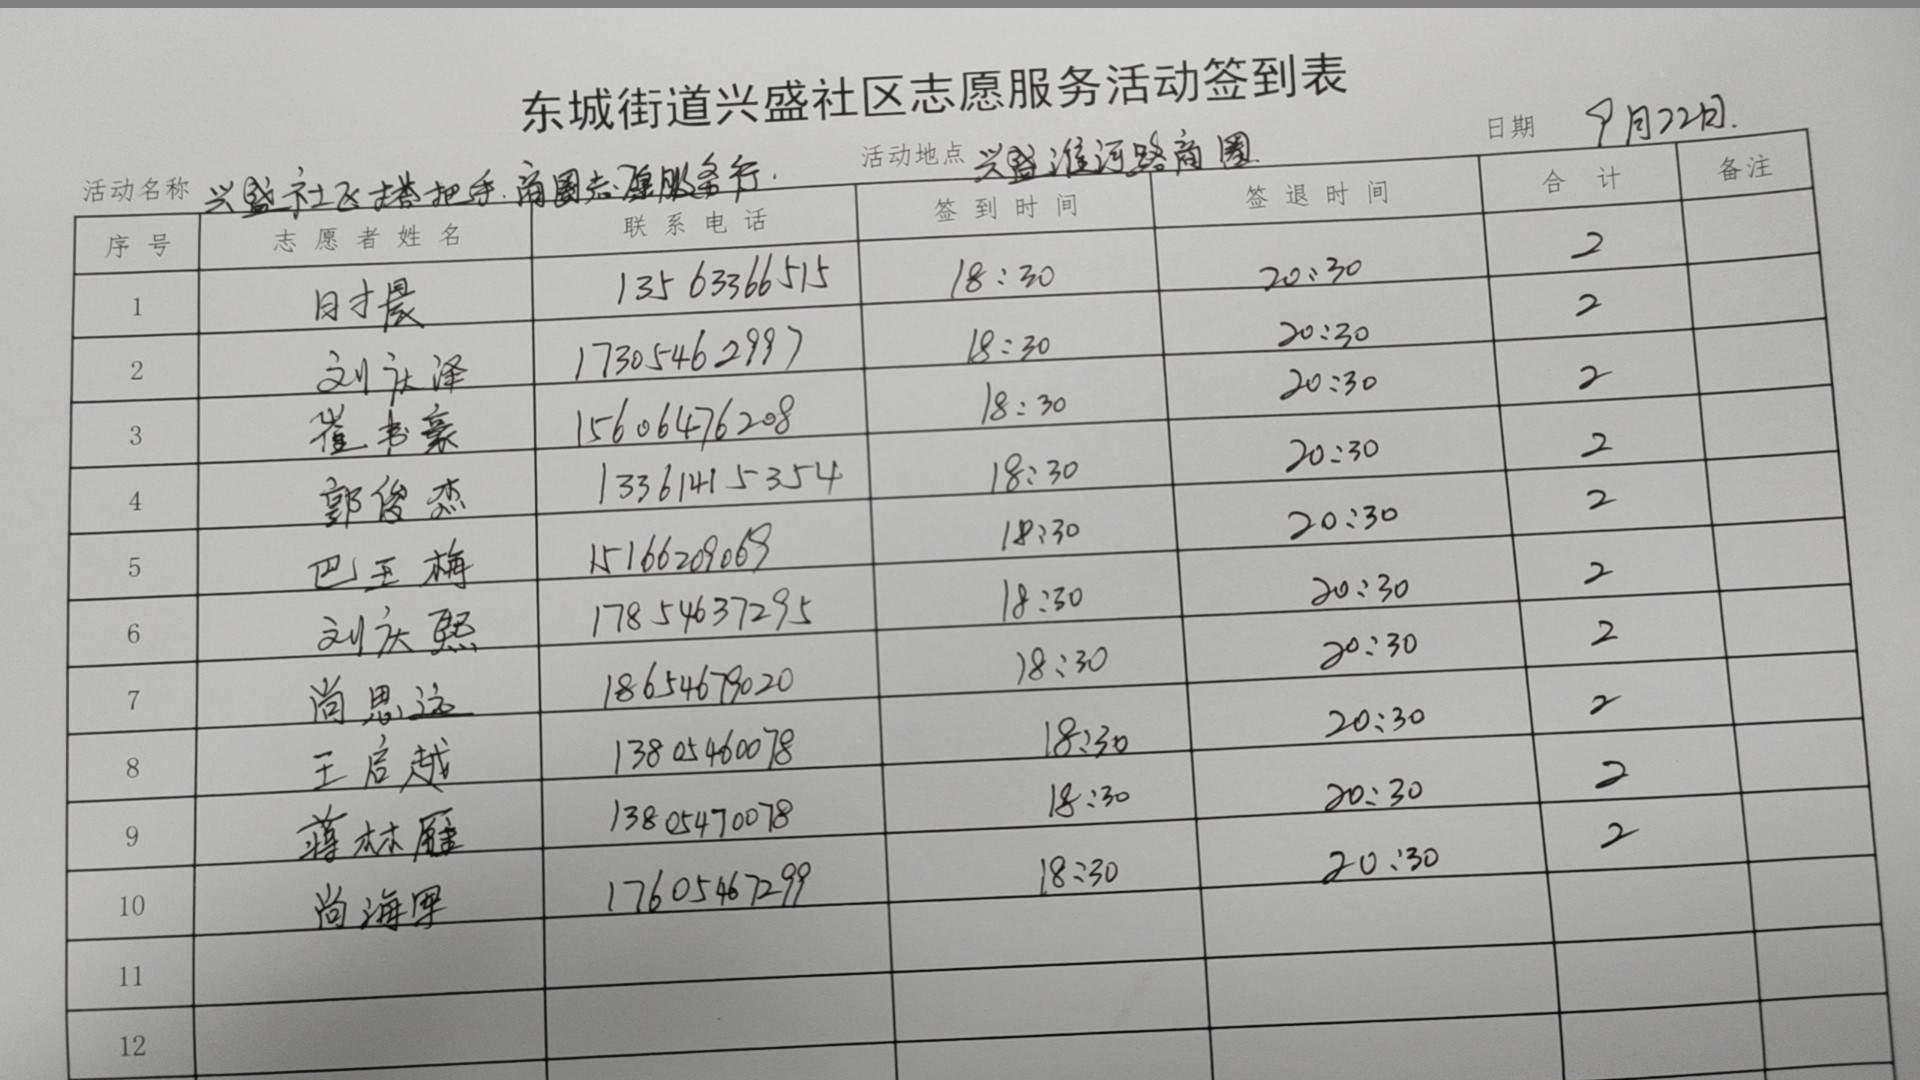 东城街道兴盛社区志愿服务活动签到表
活动名称 兴盛社区搭把手.商圈志愿服务行. 活动地点 兴盛淮河路商圈 日期 9月22日.
序号 志愿者姓名 联系电话 签到时间 签退时间 合计 备注
1 时晨 13563366515 18:30 20:30 2
2 刘庆泽 17305462997 18:30 20:30 2
3 崔书豪 15606476208 18:30 20:30 2
4 郭俊杰 13361415354 18:30 20:30 2
5 巴玉梅 15166209069 18:30 20:30 2
6 刘庆熙 17854637295 18:30 20:30 2
7 尚思远 18654679020 18:30 20:30 2
8 王启越 13805460078 18:30 20:30 2
9 蒋林 13805470078 18:30 20:30 2
10 尚海 17605467299 18:30 20:30 2
11
12